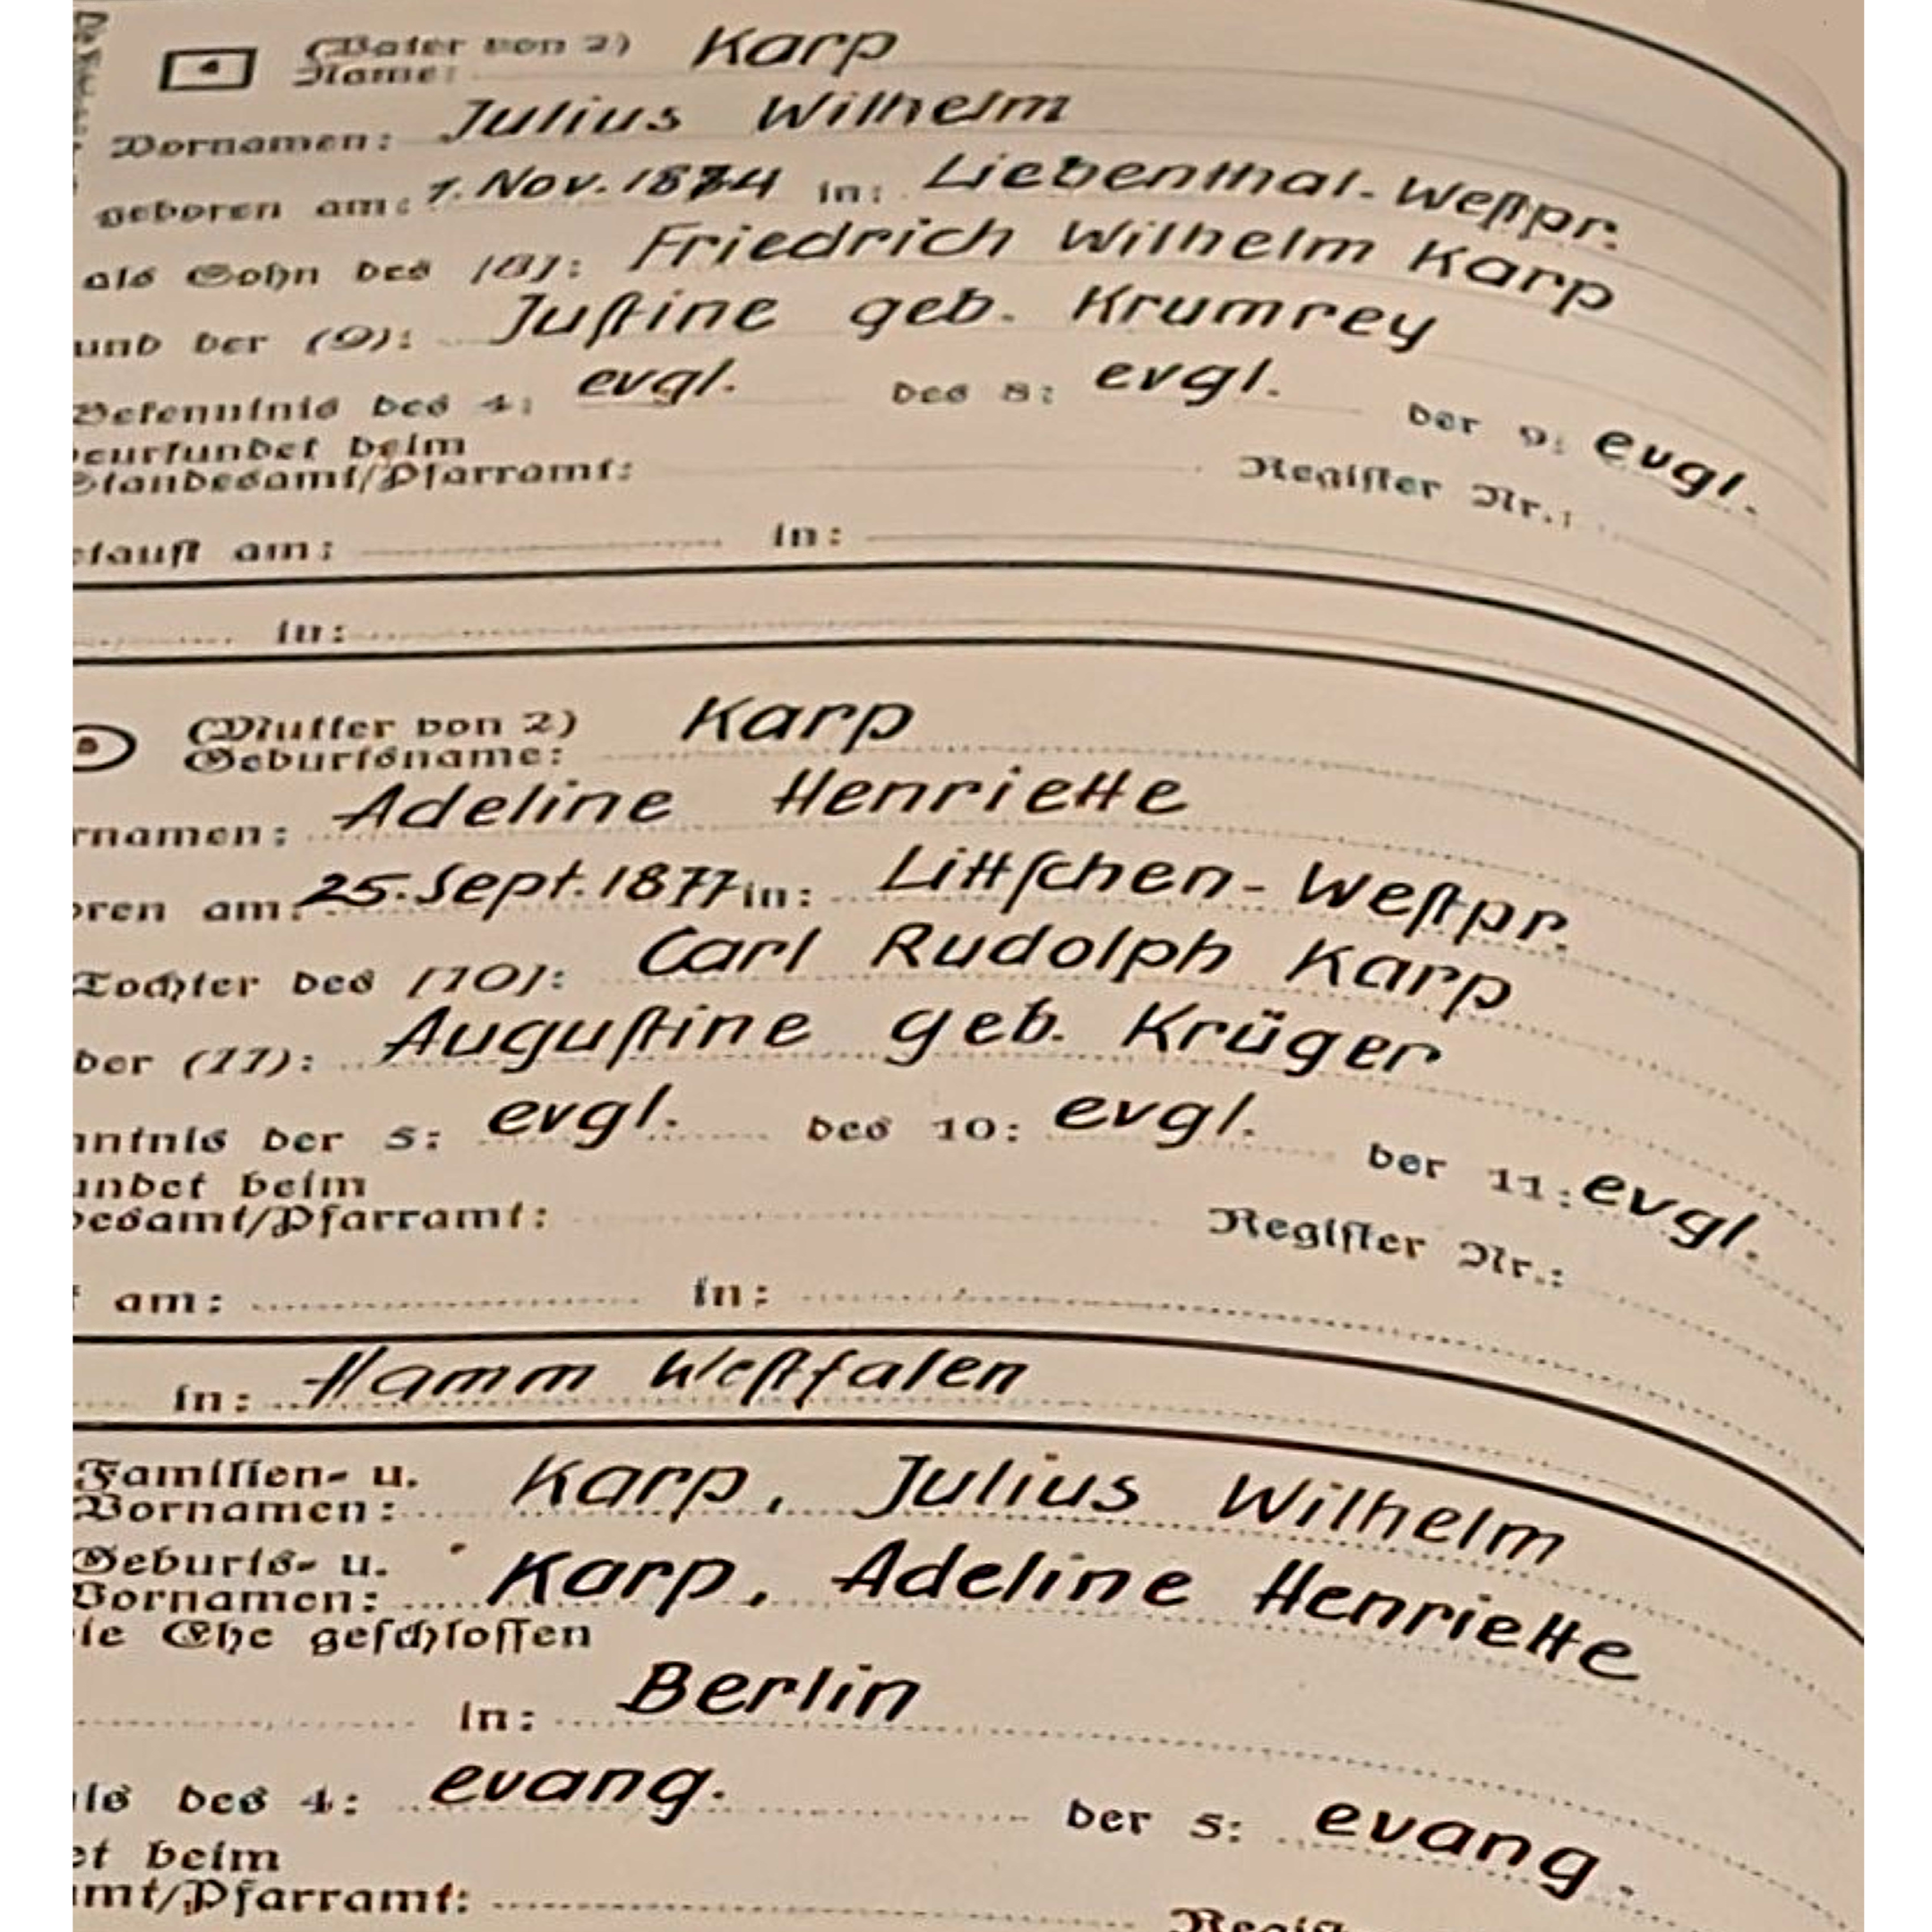 4 (Vater von 2)
Name: Karp
Vornamen: Julius Wilhelm
geboren am: 1. Nov. 1874 in: Liebenthal-Weſtpr.
als Sohn des (8): Friedrich Wilhelm Karp
und der (9): Juſtine geb. Krumrey
Bekenntnis des 4: evgl. des 8: evgl. der 9: evgl.
beurkundet beim
Standesamt/Pfarramt: Regiſter Nr.:
etauft am: in:
in:
5 (Mutter von 2) Karp
Geburtsname:
rnamen: Adeline Henriette
oren am: 25. Sept. 1877 in: Littſchen-Weſtpr.
Tochter des (10): Carl Rudolph Karp
der (11): Auguſtine geb. Krüger
nntnis der 5: evgl. des 10: evgl. der 11: evgl.
undet beim
desamt/Pfarramt: Regiſter Nr.:
t am: in:
in: Hamm Weſtfalen
Familien- u.
Vornamen: Karp, Julius Wilhelm
Geburts- u.
Vornamen: Karp, Adeline Henriette
ie Ehe geſchloſſen
in: Berlin
is des 4: evang. der 5: evang.
et beim
amt/Pfarramt: Regiſ